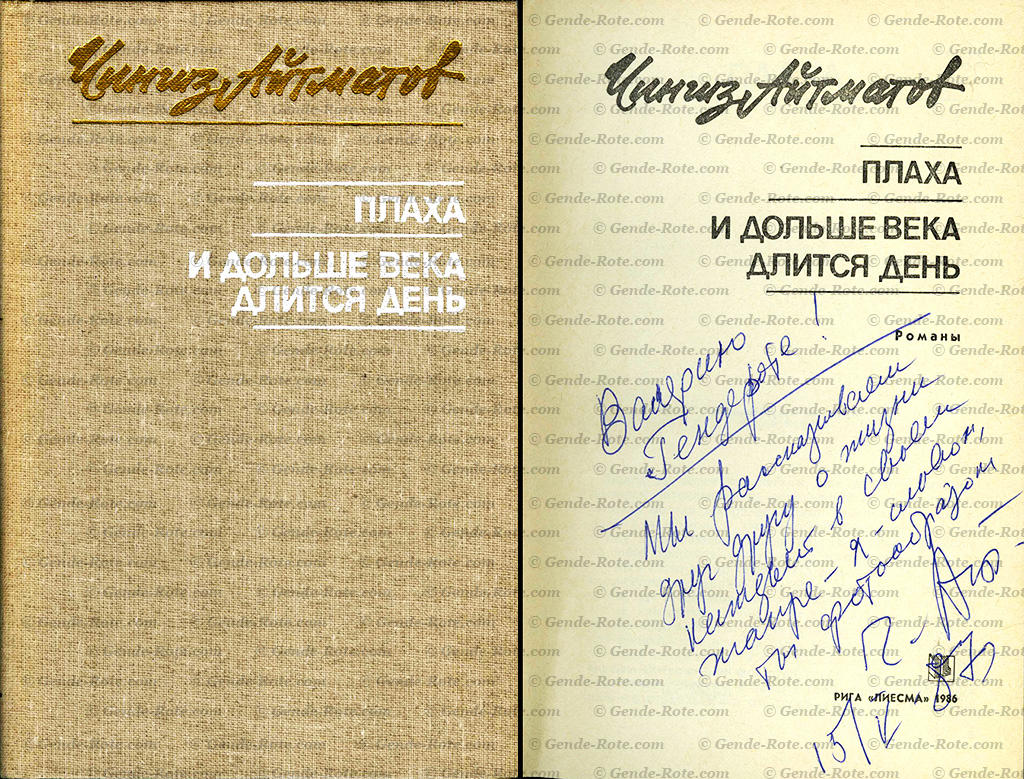 Чингиз Айтматов
ПЛАХА
И ДОЛЬШЕ ВЕКА
ДЛИТСЯ ДЕНЬ
Чингиз Айтматов
ПЛАХА
И ДОЛЬШЕ ВЕКА
ДЛИТСЯ ДЕНЬ
Романы
Валерию
Гендероте!
Мы рассказываем
друг другу о жизни
каждый в своем
жанре – я – словом,
ты фотообразом
РИГА «ЛИЕСМА» 1986
15/V
87
© Gende-Rote.com